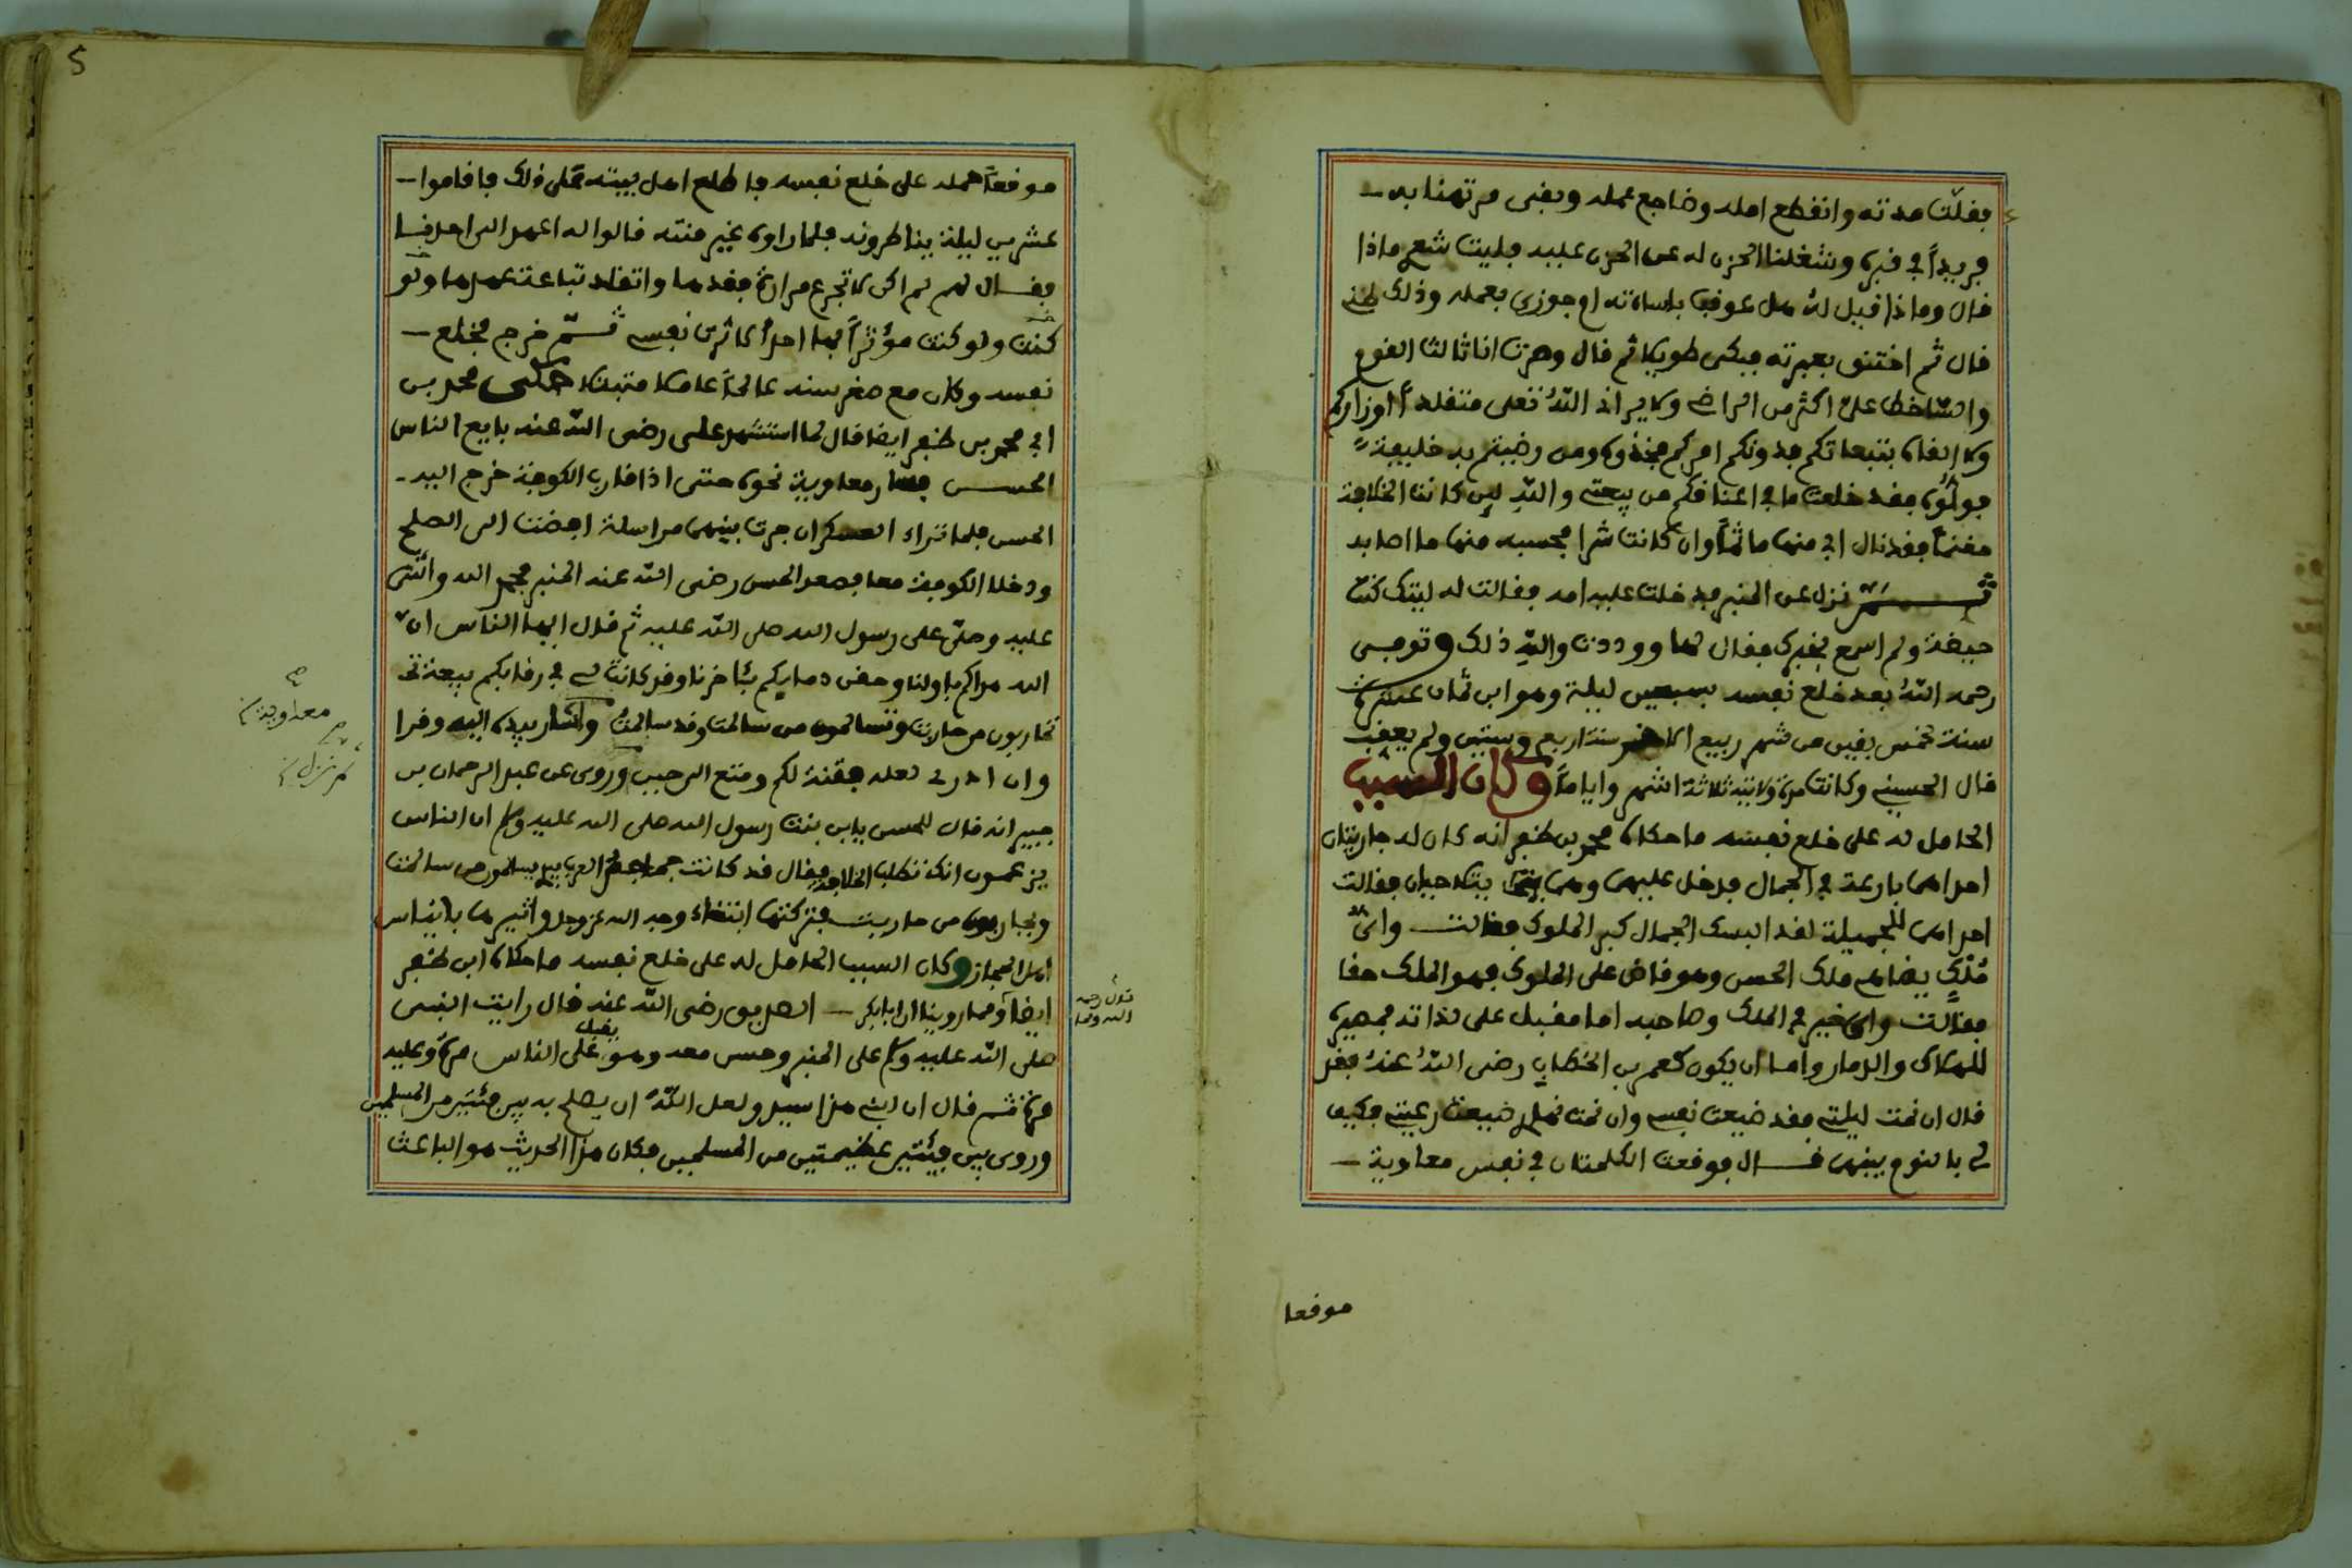 فقلّت مدته وانقطع امله وضاجع عمله وبقى مرتهنا به
فريداً في قبره وشغلنا الحزن له عن الحزن عليه فليت شعر ماذا
قال وماذا قيل له هل عوقب باساءته او جوزى بعمله وذلك ظنے
قال ثم اختنق بعبرته فبكى طويلا ثم قال وصرت انا ثالث القوم
والسّاخط علىّ اكثر من الراضے ولا يرانے اللّهُ تعلى متقلداً اوزاركم
ولا القاه بتبعاتكم فدونكم امركم فخذوه ومن رضيتم به خليفة
فولّوه فقد خلعت ما في اعناقكم من بيعتے واللّهِ لين كانت الخلافة
مغنماً فقد نال ابي منها ماثماً وان كانت شرا فحسبه منها ما اصابه
ثم نزل عن المنبر فدخلت عليه امه فقالت له ليتك كنت
حيضة ولم اسمع بخبرك فقال لها ووددت واللّهِ ذلك وتوفى
رحمه اللّهُ بعد خلع نفسه بسبعين ليلة وهو ابن ثمان عشرة
سنة لخمس بقين من شهر ربيع الاخر سنة اربع وستين ولم يعقب
قال الحسينے وكانت مدة ولايته ثلاثة اشهر واياماً وكان السبب
الحامل له على خلع نفسه ما حكاه محمد بن ظفر انه كان له جاريتان
احداهما بارعة في الجمال فدخل عليهما وهما يتلاحيان فقالت
احداهما للجميلة لقد البسك الجمال كبر الملوك فقالت واىّ
مُلْكٍ يضاهے ملك الحسن وهو قاض على الملوك فهو الملك حقا
فقالت واى خير في الملك وصاحبه اما مقبل على لذاته فمصيره
للهلاك والدمار واما ان يكون كعمر بن الخطاب رضى اللّهُ عنهُ فقد
قال ان نمت ليلتے فقد ضيعت نفسے وان نمت نهار ضيعت رعيتے فكيف
لے بالنوم بينهما قال فوقعت الكلمتان في نفس معاوية
موقعا
5
موقعاً حمله على خلع نفسه فاطلع اهل بيته على ذلك فاقاموا
عشرين ليلة يناظرونه فلما راوه غير منته قالوا له اعهد الى احد منا
فقال لهم لم اكن لاتجرع مرارة فقدها واتقلد تباعة عهدها ولو
كنت ولو كنت مؤثراً بها احداً لاثرت نفسے ثم خرج فخلع
نفسه وكان مع صغر سنه عالماً عاملا متبتلا حكى محمد بن
ابي محمد بن ظفر ايضا قال لما استشهد على رضى اللّه عنه بايع الناس
الحسن فسار معاوية نحوه حتى اذا قارب الكوفة خرج اليه
الحسن فلما تراء العسكران جرت بينهما مراسلة افضت الى الصلح
ودخلا الكوفة معا فصعد الحسن رضى اللّه عنه المنبر فحمد الله واثنى
عليه وصلى على رسول الله صلى اللّه عليه ثم قال ايها الناس ان
الله هداكم باولنا وحقن دماءكم بئاخرنا وقد كانت لے في رقابكم بيعة
تحاربون من حاربت وتسالمون من سالمت وقد سالمت واشار بيده اليه وقرا
وان ادرے لعله فتنة لكم ومتع الى حين وروى عن عبد الرحمان بن
جبير انه قال للحسن يابن بنت رسول الله صلى الله عليه ان الناس
يزعمون انك تطلب الخلافة فقال قد كانت جماجم العرب بيدے يسالمون من سالمت
ويحاربون من حاربت فتركتها ابتغاء وجه الله عز وجل واثيرها باتياس
اهل الحجاز وكان السبب الحامل له على خلع نفسه ما حكاه ابن ظفر
ايضاً ومما روينا ان ابابكر الصديق رضى اللّه عنه قال رايت النبى
صلى اللّه عليه على المنبر وحسن معه وهو يقبل على الناس مرةً وعليه
مرة ثم قال ان ابنے هذا سيد ولعل اللّهُ ان يصلح به بين فئتين من المسلمين
وروى بين فئتين عظيمتين من المسلمين فكان هذا الحديث هو الباعث
معاوية
ثم نزل